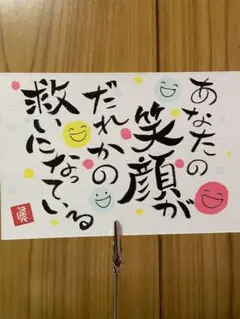 あなたの
笑顔が
だれかの
救いになっている